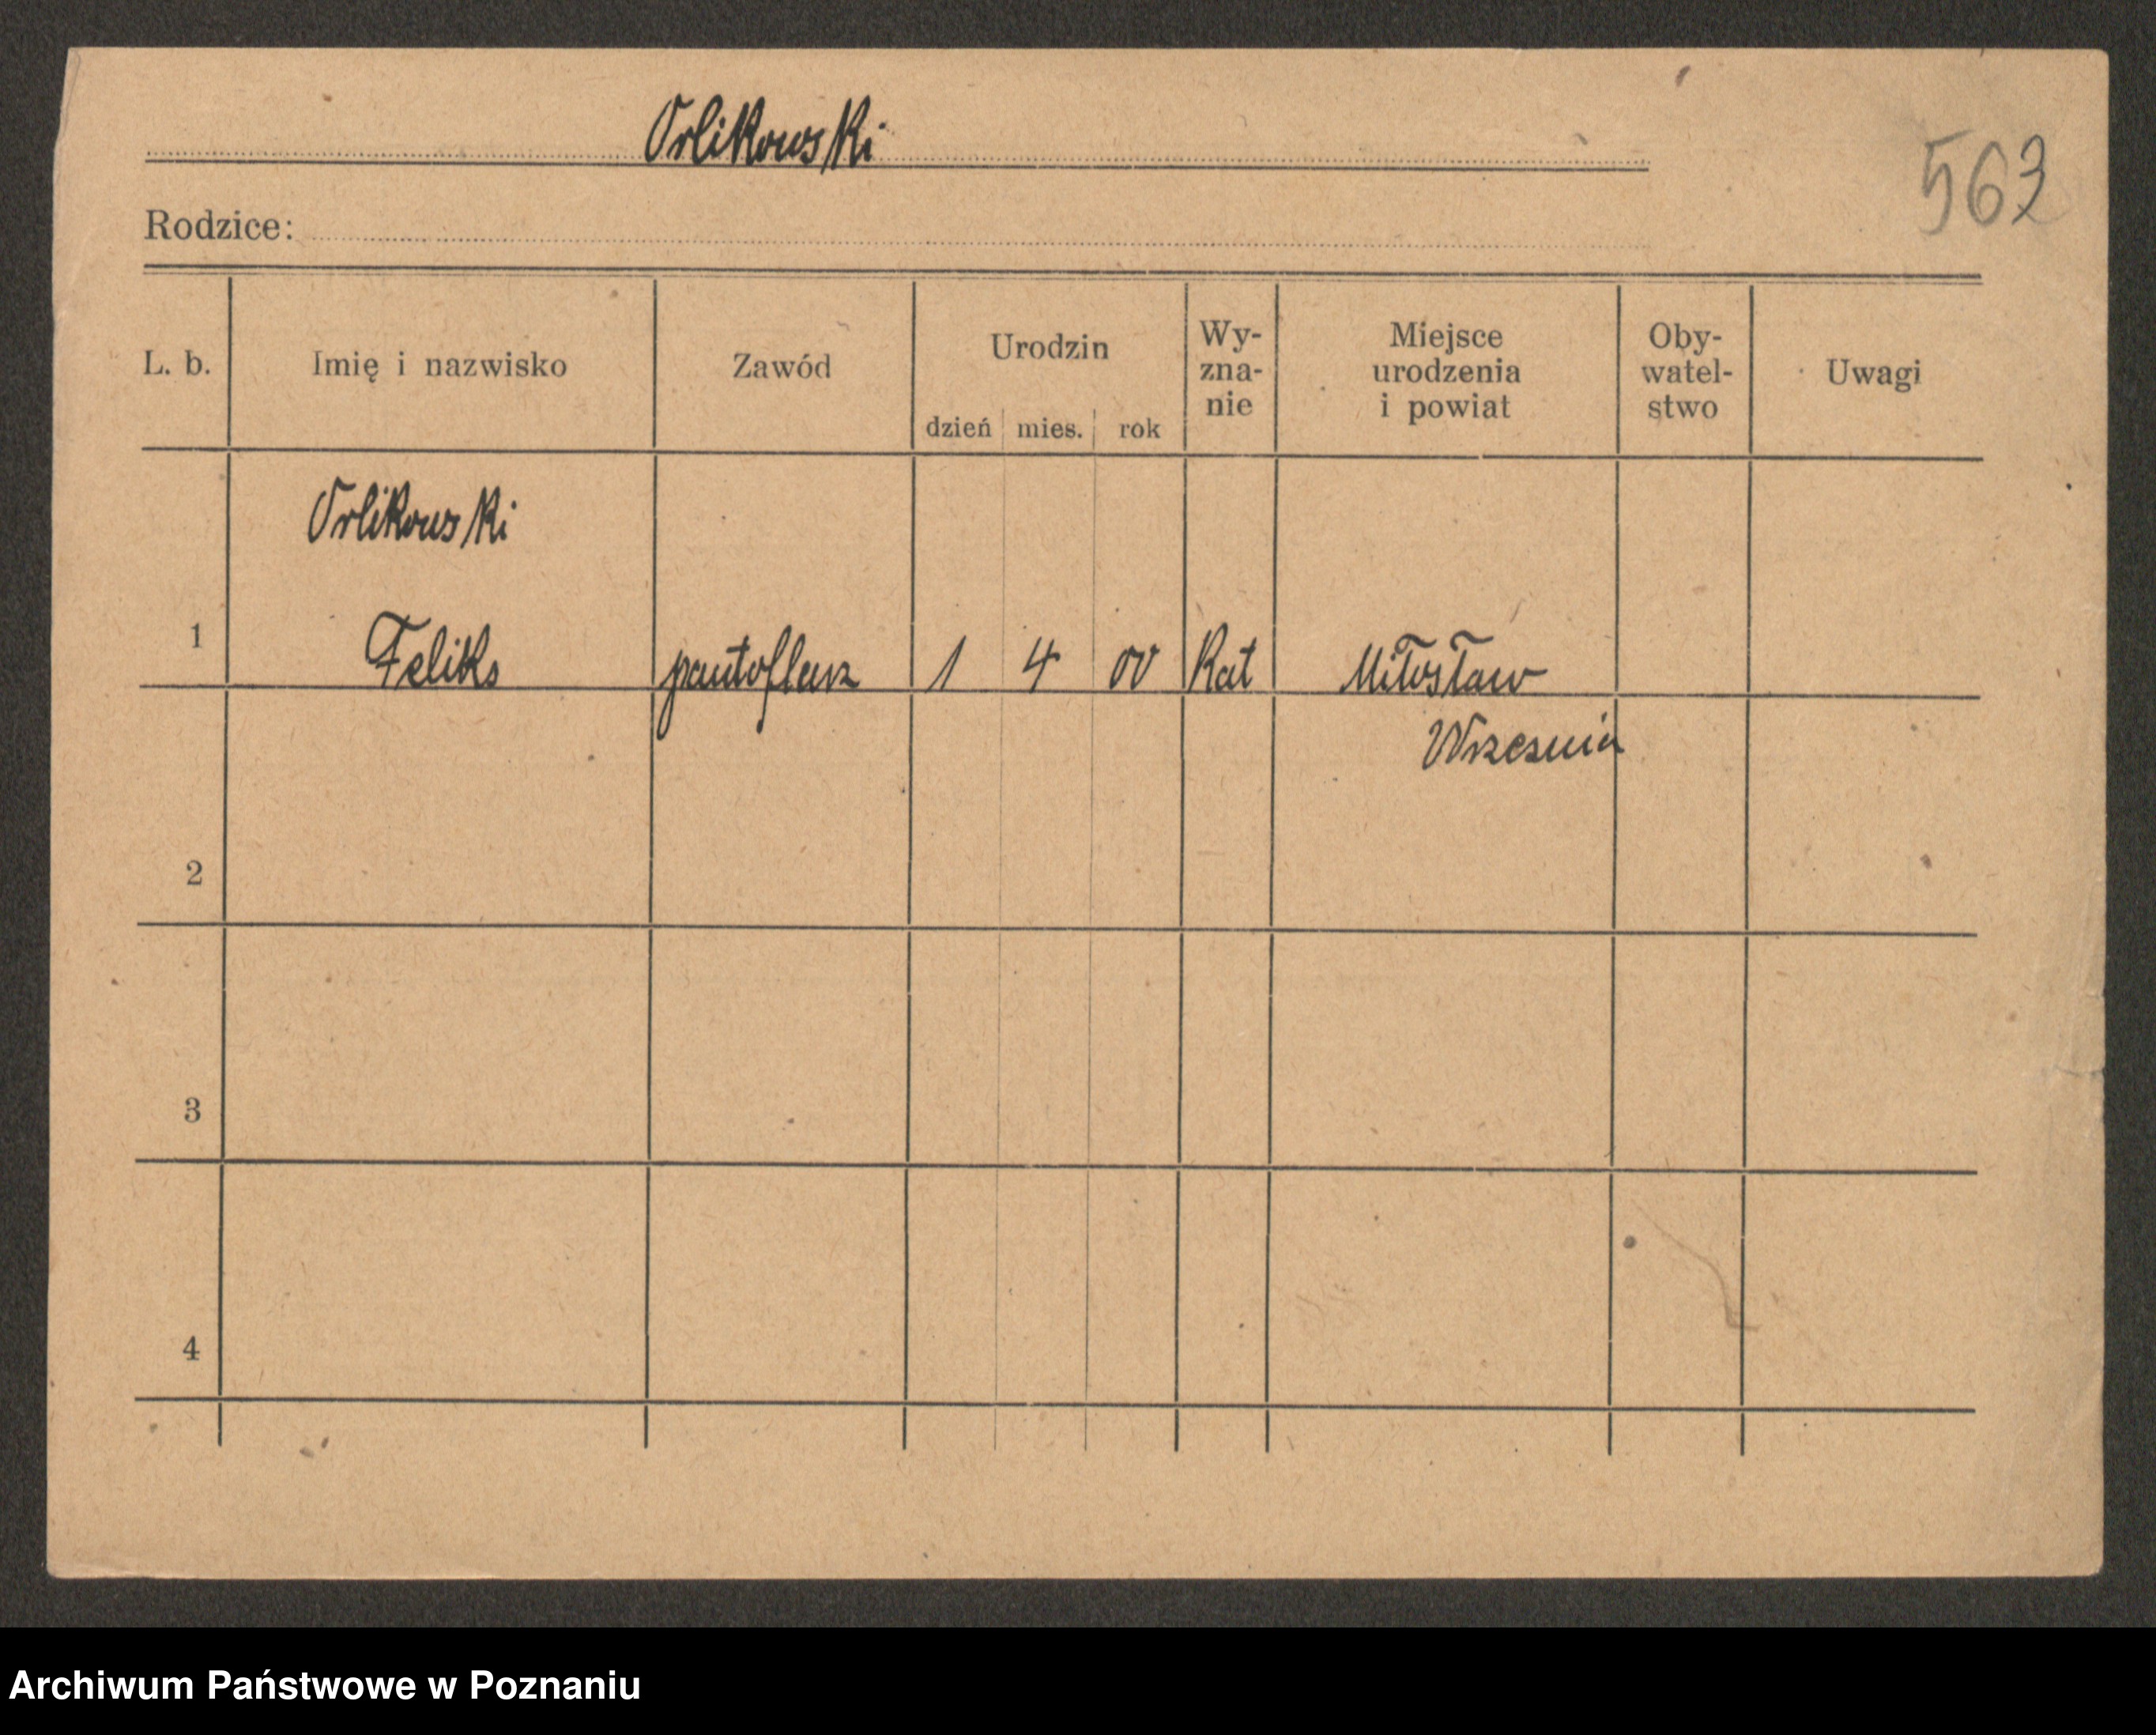 Orlikowski
563
Rodzice:
L. b.
Imię i nazwisko
Zawód
Urodzin
dzień mies. rok
Wy-
zna-
nie
Miejsce
urodzenia
i powiat
Oby-
watel-
stwo
Uwagi
Orlikowski
1 Feliks pantoflarz 1 4 00 Kat Miłosław
Wrzesnia
2
3
4
Archiwum Państwowe w Poznaniu